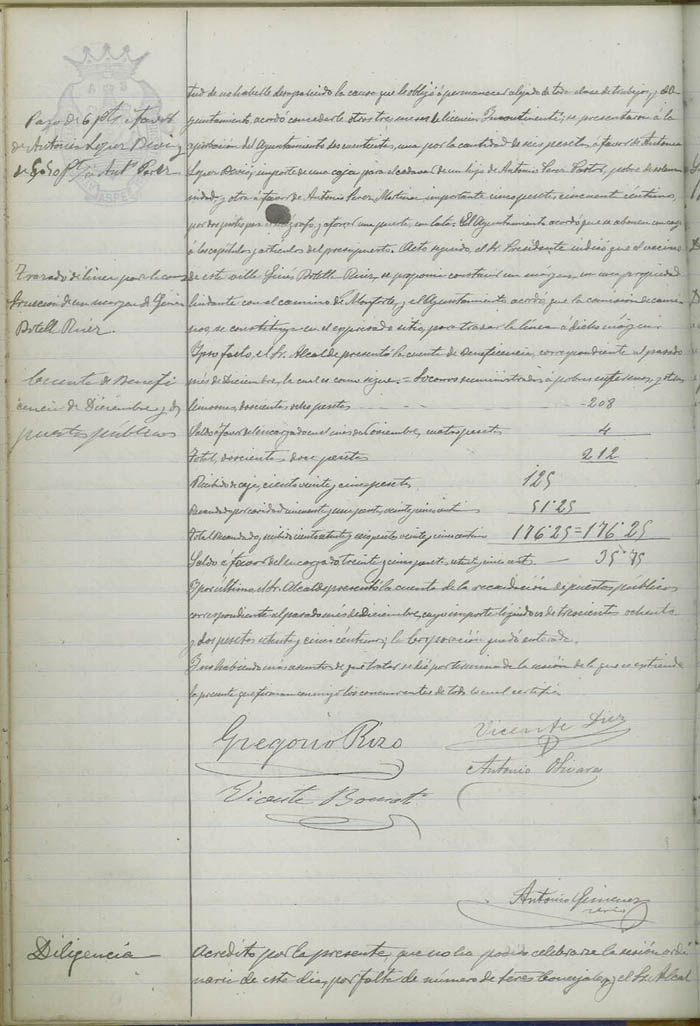 tud de no haberle desaparecido la causa que le obligó á permanecer alejado de toda clase de trabajos, y el A-
yuntamiento, acordó concederle otros tres meses de licencia. Incontinenti, se presentaron á la
aprobación del Ayuntamiento dos cuentas, una por la cantidad de seis pesetas, á favor de Antonio
Lopez importe de una caja para el cadaver de un hijo de Antonio Perez Pastor, pobre de solem-
nidad, y otra á favor de Antonio Perez Martinez importante cinco pesetas, cincuenta céntimos,
por dos y aforrar una puerta, con lata. El Ayuntamiento acordó que se abonen con cargo
á los capítulos y artículos del presupuesto. Acto seguido, el Sr. Presidente indicó que el vecino
de esta villa Ginés Botella Ruiz, se proponia construir un márgen, en una propiedad
lindante con el camino de Monforte, y el Ayuntamiento acordó que la comisión de cami-
nos, se constituya en el expresado sitio, para trazar la línea á dicho márgen.
Ipso facto, el Sr. Alcalde presentó la cuenta de Beneficencia, correspondiente al pasado
mes de Diciembre, la cual es como sigue: = Socorros suministrados á pobres enfermos, y otras
limosnas, doscientas ocho pesetas 208
Saldo á favor del encargado en el mes de Noviembre, cuatro pesetas 4
Total, doscientas doce pesetas 212
Recibido de caja, ciento veinte y cinco pesetas 125
Recaudado por caridad cincuenta y una pesetas, veinte y cinco cénti 51'25
Total Recaudado, y recibido ciento setenta y seis pesetas veinte y cinco céntimos 176'25 = 176'25
Saldo á favor del encargado, treinta y cinco pesetas, setenta y cinco cént. 35'75
Y por último, el Sr. Alcalde presentó la cuenta de la recaudación de puestos públicos
correspondiente al pasado mes de Diciembre, cuyo importe líquido es de trescientas ochenta
y dos pesetas setenta y cinco céntimos; la Corporación quedó enterada.
Y no habiendo más asuntos de que tratar se dió por terminada la sesión de la que se extiende
la presente que firman conmigo los concurrentes de todo lo cual certifico.
Pago de 6 pts á favor
de Antonio Lopez
de 5,50 pts á Antº Perez
Trazado de línea para la cons-
trucción de un margen de Ginés
Botella Ruiz.
Cuenta de Benefi-
cencia de Diciembre y de
puestos públicos
Gregorio Rizo
Vicente Diez
Antonio Olivares
Vicente
Antonio Gimenez
srio
Diligencia
Acredito por la presente, que no ha podido celebrarse la sesión ordi-
naria de este dia, por falta de número de Sres Concejales, y el Sr. Alcal